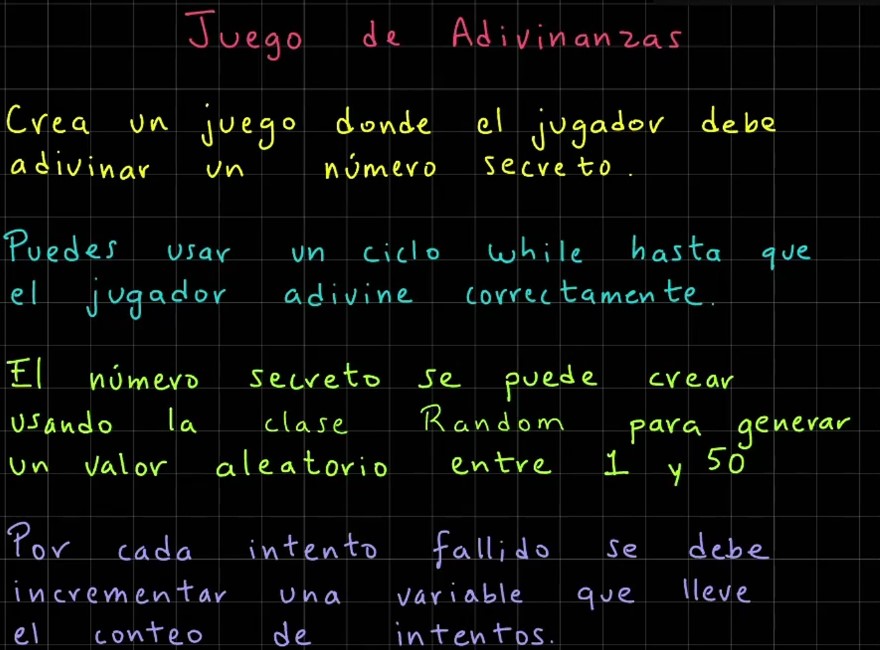 Juego de Adivinanzas
Crea un juego donde el jugador debe
adivinar un número secreto.
Puedes usar un ciclo while hasta que
el jugador adivine correctamente.
El número secreto se puede crear
usando la clase Random para generar
un valor aleatorio entre 1 y 50
Por cada intento fallido se debe
incrementar una variable que lleve
el conteo de intentos.